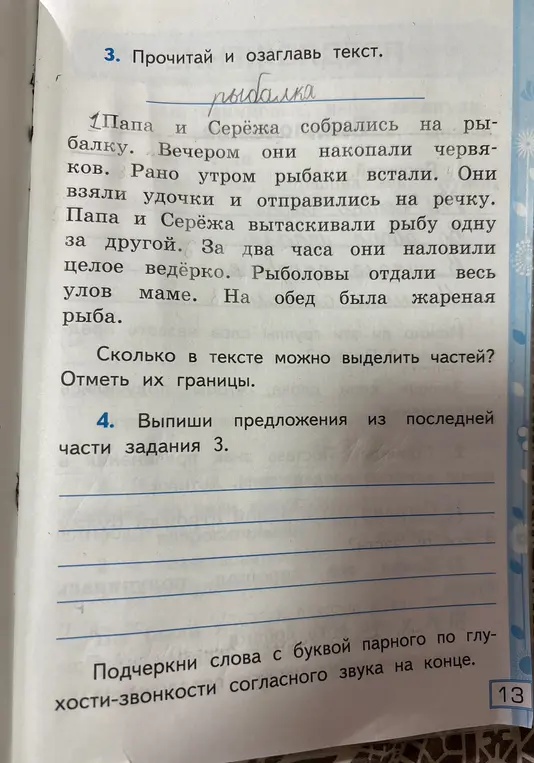 3. Прочитай и озаглавь текст.
рыбалка
1Папа и Серёжа собрались на ры-
балку. Вечером они накопали червя-
ков. Рано утром рыбаки встали. Они
взяли удочки и отправились на речку.
Папа и Серёжа вытаскивали рыбу одну
за другой. За два часа они наловили
целое ведёрко. Рыболовы отдали весь
улов маме. На обед была жареная
рыба.
Сколько в тексте можно выделить частей?
Отметь их границы.
4. Выпиши предложения из последней
части задания 3.
Подчеркни слова с буквой парного по глу-
хости-звонкости согласного звука на конце.
13